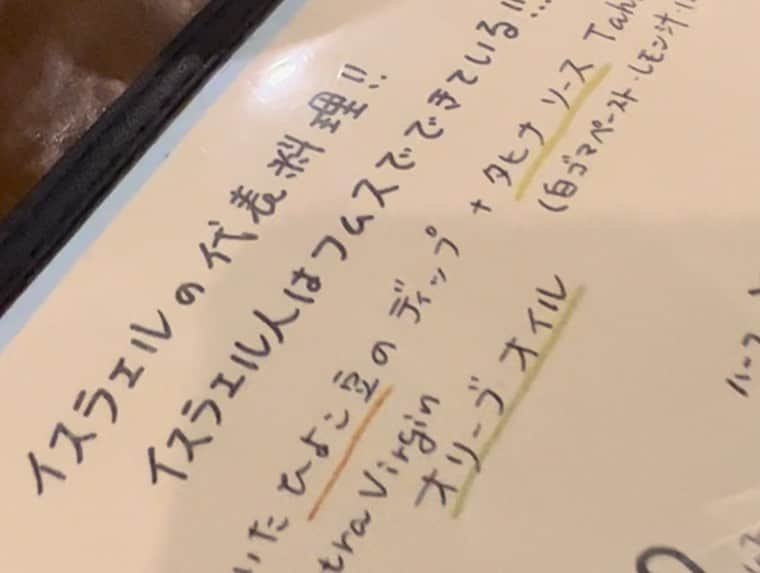 イスラエルの代表料理!!
イスラエル人はフムスでできている!!
いたひよこ豆のディップ + タヒナソース Tah
(白ゴマペースト・レモン汁・
tra Virgin
オリーブオイル
ハーフ